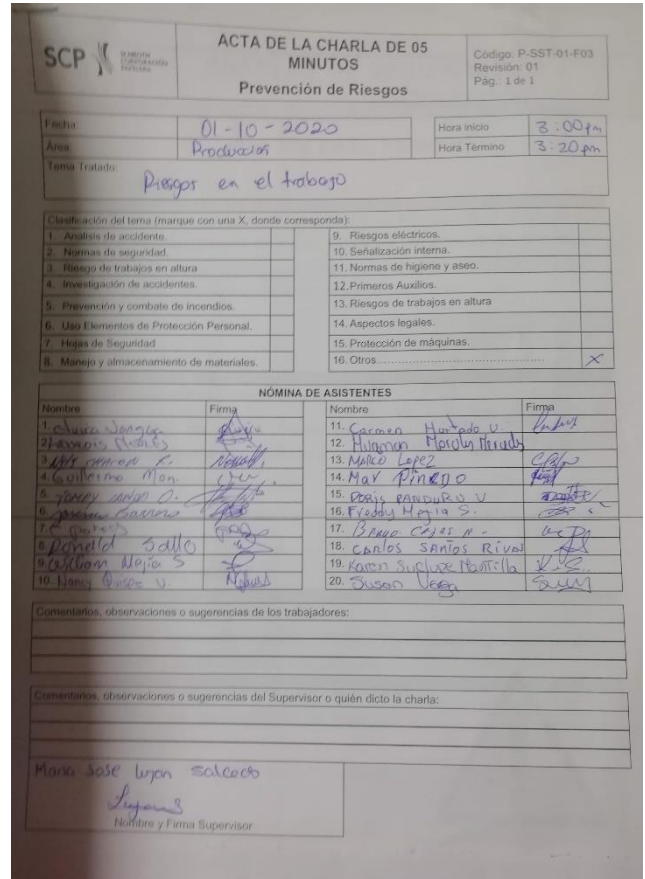 SCP
ACTA DE LA CHARLA DE 05
MINUTOS
Prevención de Riesgos
Código: P-SST-01-F03
Revisión: 01
Pág.: 1 de 1
Fecha: 01-10-2020 Hora inicio 3:00 pm
Área: Produccion Hora Término 3:20 pm
Tema Tratado:
Riesgos en el trabajo
Clasificación del tema (marque con una X, donde corresponda):
1. Análisis de accidente. 9. Riesgos eléctricos.
2. Normas de seguridad. 10. Señalización interna.
3. Riesgo de trabajos en altura 11. Normas de higiene y aseo.
4. Investigación de accidentes. 12. Primeros Auxilios.
5. Prevención y combate de incendios. 13. Riesgos de trabajos en altura
6. Uso Elementos de Protección Personal. 14. Aspectos legales.
7. Hojas de Seguridad 15. Protección de máquinas.
8. Manejo y almacenamiento de materiales. 16. Otros X
NÓMINA DE ASISTENTES
Nombre Firma Nombre Firma
1. 11. Carmen Hurtado V.
2. 12. Huaman Morales
3. 13. Marco Lopez
4. Guillermo Mon. 14. Mar Pinedo
5. 15. Doris Panduro V
6. Barrera 16. Freddy Mejia S.
7. 17. Bravo
8. Donelld 18. Carlos Santos Rivas
9. William Mejia S 19. Karen
10. Nancy Quispe V. 20. Susan Vega
Comentarios, observaciones o sugerencias de los trabajadores:
Comentarios, observaciones o sugerencias del Supervisor o quién dicto la charla:
Maria Jose Lujan Salcedo
Nombre y Firma Supervisor